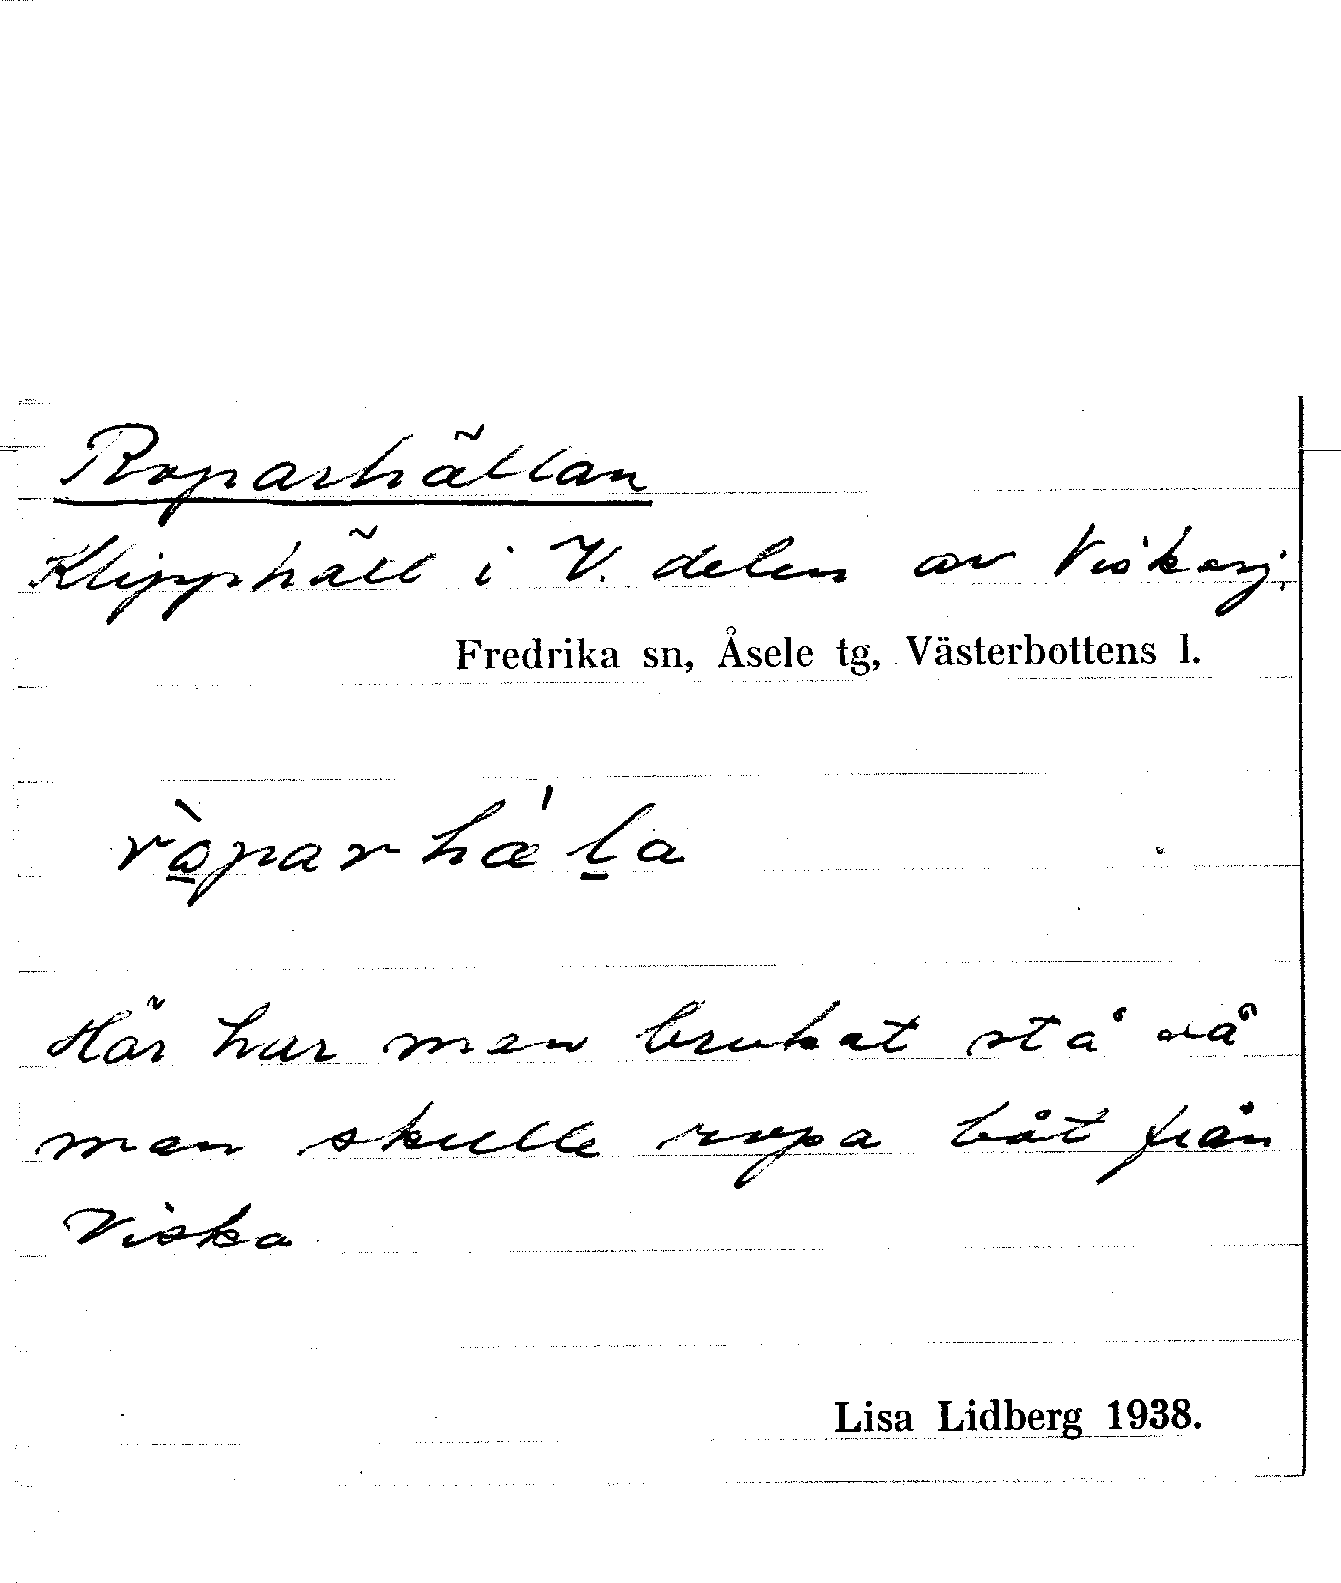 Roparhällan
Klipphäll i V. delen av Viskasj.
Fredrika sn, Åsele tg, Västerbottens l.
rò̲parhæ´l̲a
Här har man brukat stå då
man skulle ropa båt från
Viska
Lisa Lidberg 1938.